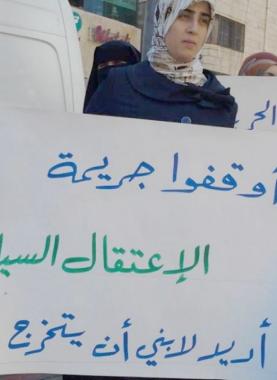 الحر
أوقفوا جريمة
الإعتقال السيا
أريد لابني أن يتخرج